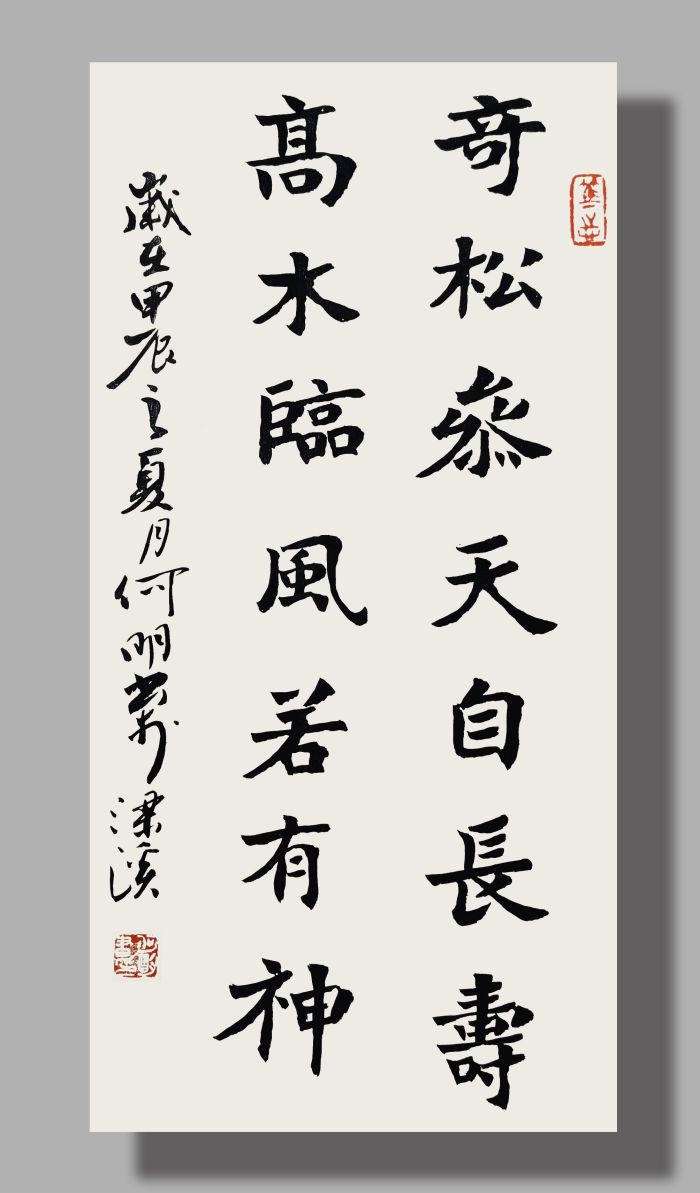 奇松叅天自長壽
髙水臨風若有神
歲在甲辰之夏月何明書於梁溪